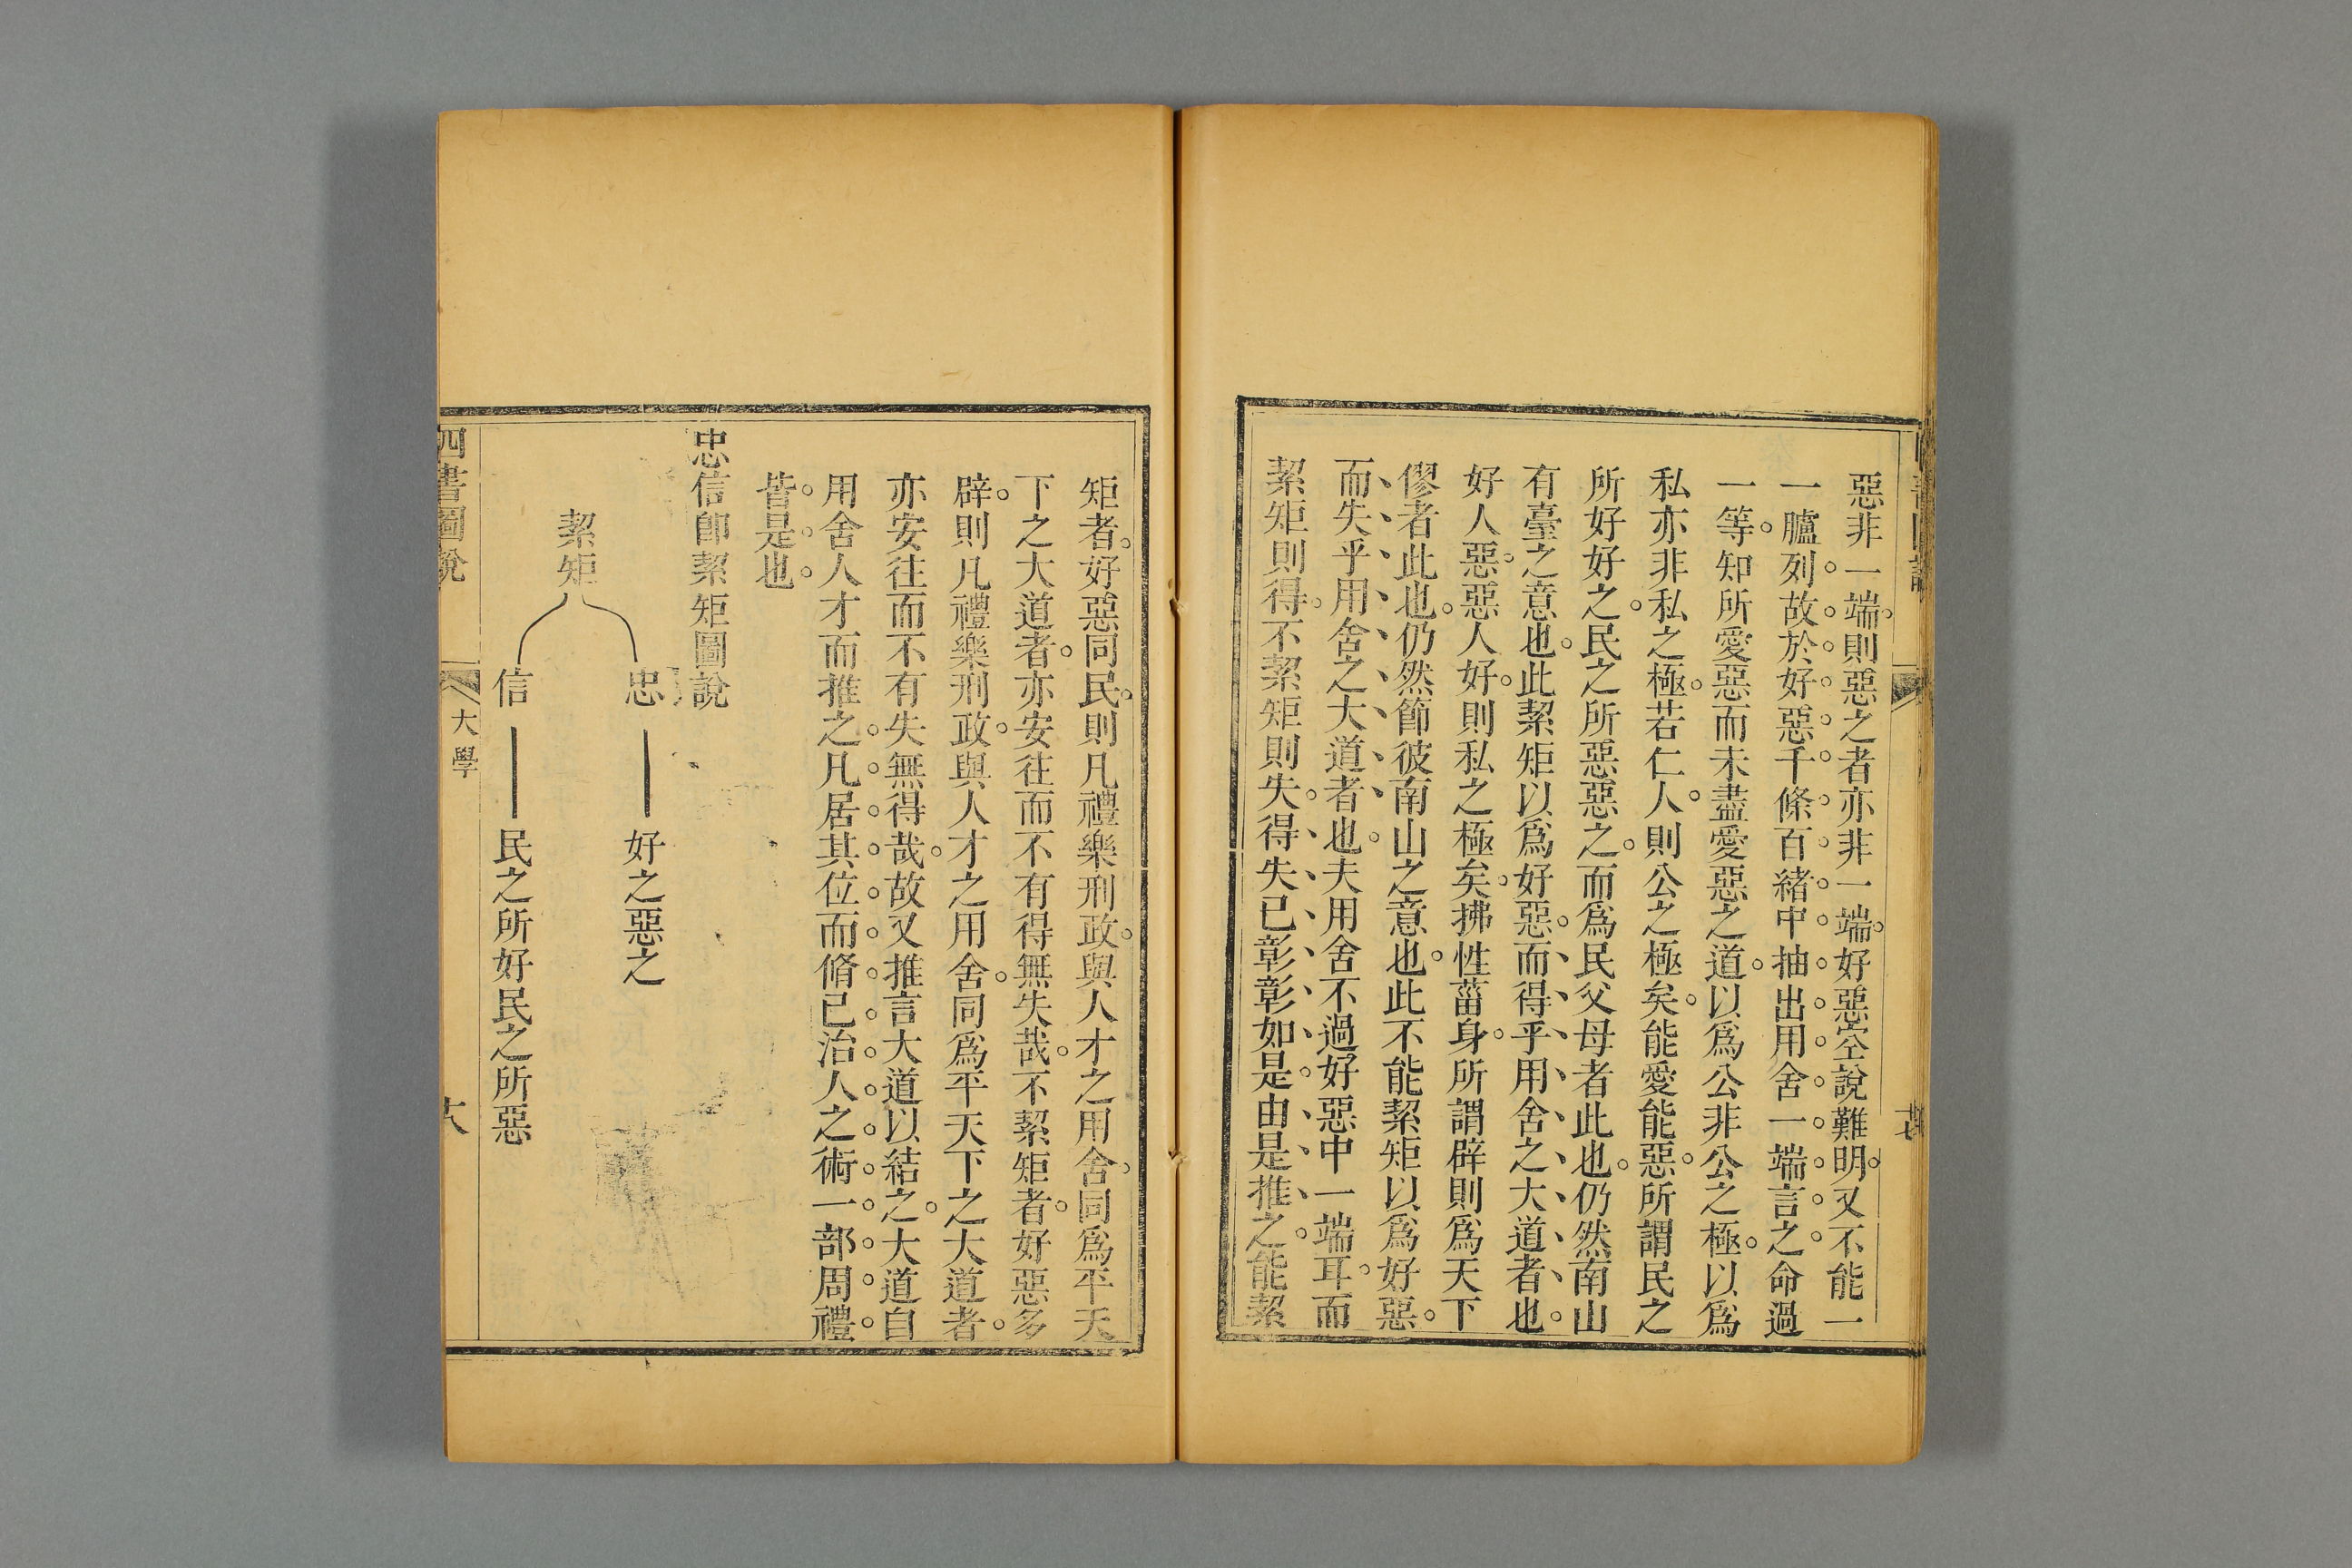 惡非一端則惡之者亦非一端好惡空說難明又不能一
一臚列故於好惡千條百緒中抽出用舍一端言之命過
一等知所愛惡而未盡愛惡之道以爲公非公之極以爲
私亦非私之極若仁人則公之極矣能愛能惡所謂民之
所好好之民之所惡惡之而爲民父母者此也仍然南山
有臺之意也此絜矩以爲好惡而得乎用舍之大道者也
好人惡惡人好則私之極矣拂性菑身所謂辟則爲天下
僇者此也仍然節彼南山之意也此不能絜矩以爲好惡
而失乎用舍之大道者也夫用舍不過好惡中一端耳而
絜矩則得不絜矩則失得失已彰彰如是由是推之能絜
矩者好惡同民則凡禮樂刑政與人才之用舍同爲平天
下之大道者亦安往而不有得無失哉不絜矩者好惡多
辟則凡禮樂刑政與人才之用舍同爲平天下之大道者
亦安往而不有失無得哉故又推言大道以結之大道自
用舍人才而推之凡居其位而脩已治人之術一部周禮
皆是也
忠信卽絜矩圖說
絜矩
忠 好之惡之
信 民之所好民之所惡
四書圖說 大學